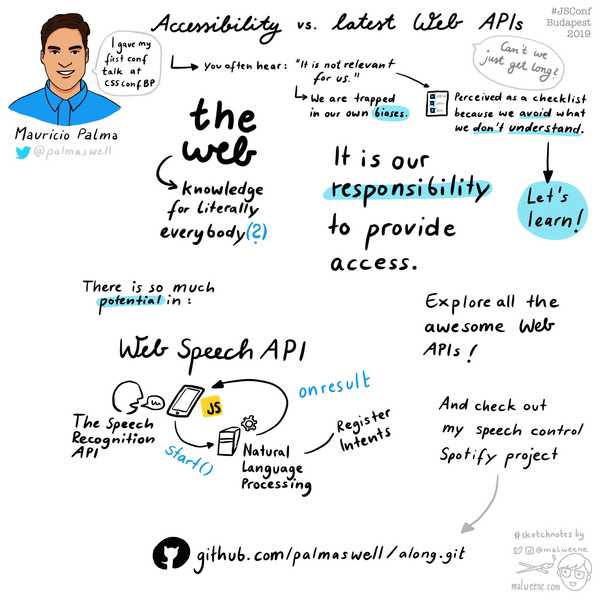 Accessibility vs. latest Web APIs
#JSConf
Budapest
2019
I gave my
first conf
talk at
CSSconfBP
Mauricio Palma
@palmaswell
You often hear: "It is not relevant
for us."
We are trapped
in our own biases.
Can't we
just get long?
Perceived as a checklist
because we avoid what
we don't understand.
Let's
learn!
the
web
knowledge
for literally
everybody(?)
It is our
responsibility
to provide
access.
There is so much
potential in:
Web Speech API
The Speech
Recognition
API
JS
start()
onresult
Natural
Language
Processing
Register
Intents
Explore all the
awesome Web
APIs!
And check out
my speech control
Spotify project
github.com/palmaswell/along.git
#sketchnotes by
@malweene
malweene.com